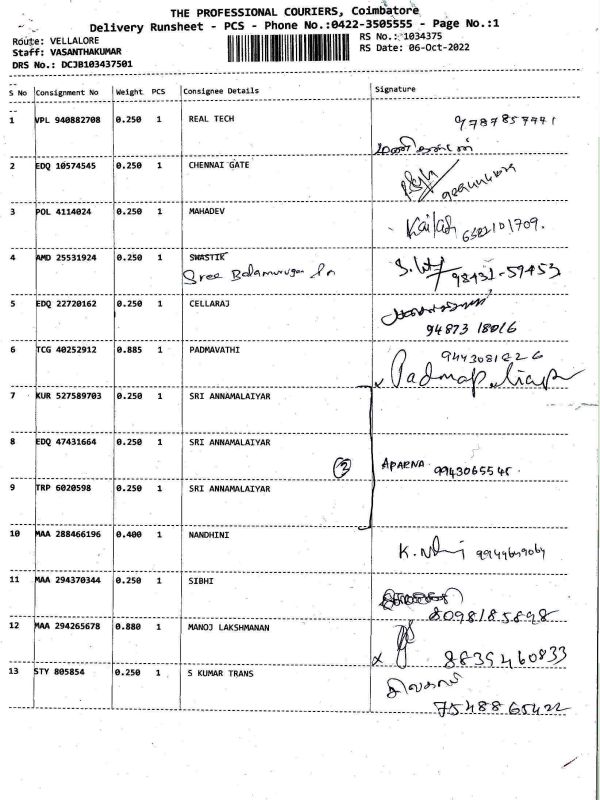 THE PROFESSIONAL COURIERS, Coimbatore
Delivery Runsheet - PCS - Phone No.:0422-3505555 - Page No.:1
Route: VELLALORE
RS No.: 1034375
Staff: VASANTHAKUMAR
RS Date: 06-Oct-2022
DRS No.: DCJB103437501
S No Consignment No Weight PCS Consignee Details Signature
1 VPL 940882708 0.250 1 REAL TECH 9787857441
2 EDQ 10574545 0.250 1 CHENNAI GATE
3 POL 4114024 0.250 1 MAHADEV Kailash 6382101709.
4 AMD 25531924 0.250 1 SWASTIK
Sree Balamurugan 98431-59453
5 EDQ 22720162 0.250 1 CELLARAJ
94873 18016
6 TCG 40252912 0.885 1 PADMAVATHI 9443081226
7 KUR 527589703 0.250 1 SRI ANNAMALAIYAR
8 EDQ 47431664 0.250 1 SRI ANNAMALAIYAR
3 APARNA 9943065545
9 TRP 6020598 0.250 1 SRI ANNAMALAIYAR
10 MAA 288466196 0.400 1 NANDHINI
K. 9944649064
11 MAA 294370344 0.250 1 SIBHI
8098185898
12 MAA 294265678 0.880 1 MANOJ LAKSHMANAN
x 8839460833
13 STY 805854 0.250 1 S KUMAR TRANS
7548865422